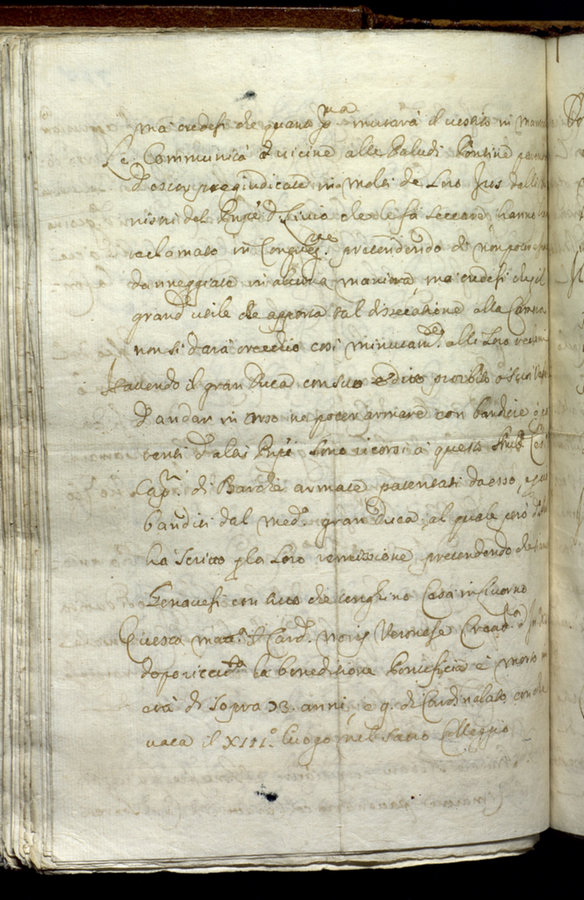 ma credesi che quanto p.ma mutarà il vestito in
Le Communità vicine alle Paludi Pontine
d'esser pregiudicate in molti de Loro Jus dalli
nistri del Pnpe D. Livio che le fà seccare, hanno
reclamato in Congne, pretendendo di non poter
danneggiate in alcuna maniera ma credesi che il
grand'utile che apporta tal disseccatione alla Camera
non si darà orecchio così minutamte alli Loro
Havendo il gran Duca con suo editto proibito
d'andar in Corso ne poter armare con bandiere
d'altri Pnpi sono ricorsi à questo
Capni di Barche armate patentati da esso, e
banditi dal medo gran Duca, al quale però
ha scritto p la Loro remissione, pretendendo che
Genovesi con tutto che tenghino Casa in Livorno
Questa matta il Card. Noris Veronese
dopo ricevta la beneditione Pontificia è morto in
età di sopra 73 anni, e 9 di Cardinalato con che
vaca il XIII.o luogo nel Sacro Collegio